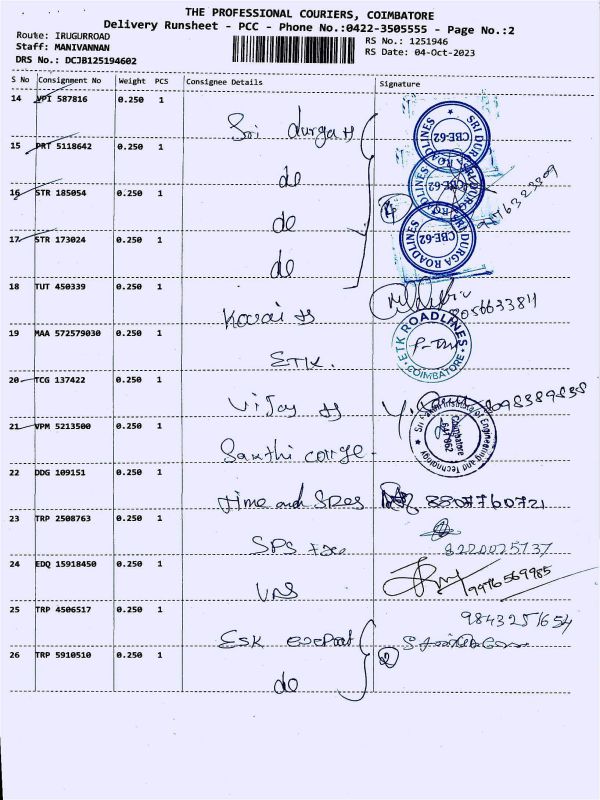 THE PROFESSIONAL COURIERS, COIMBATORE
Delivery Runsheet - PCC - Phone No.:0422-3505555 - Page No.:2
Route: IRUGURROAD
RS No.: 1251946
Staff: MANIVANNAN
RS Date: 04-Oct-2023
DRS No.: DCJB125194602
S No Consignment No Weight PCS Consignee Details Signature
14 VPI 587816 0.250 1 Sri durga
SRI DURGA ROADLINES CBE-62
15 PRT 5118642 0.250 1 do
SRI DURGA ROADLINES CBE-62
16 STR 185054 0.250 1 do 4
17 STR 173024 0.250 1 do
SRI DURGA ROADLINES CBE-62
18 TUT 450339 0.250 1 8056633811
19 MAA 572579030 0.250 1 ETK.
ETK ROADLINES COIMBATORE
20 TCG 137422 0.250 1 Vijay
21 VPM 5213500 0.250 1 Sakthi
Institute of Engineering and Technology Coimbatore 641 062
22 DDG 109151 0.250 1 time and 8807760721
23 TRP 2508763 0.250 1 SPS 8220025737
24 EDQ 15918450 0.250 1 9976569985
25 TRP 4506517 0.250 1 ESK 9843251654
26 TRP 5910510 0.250 1 do 2